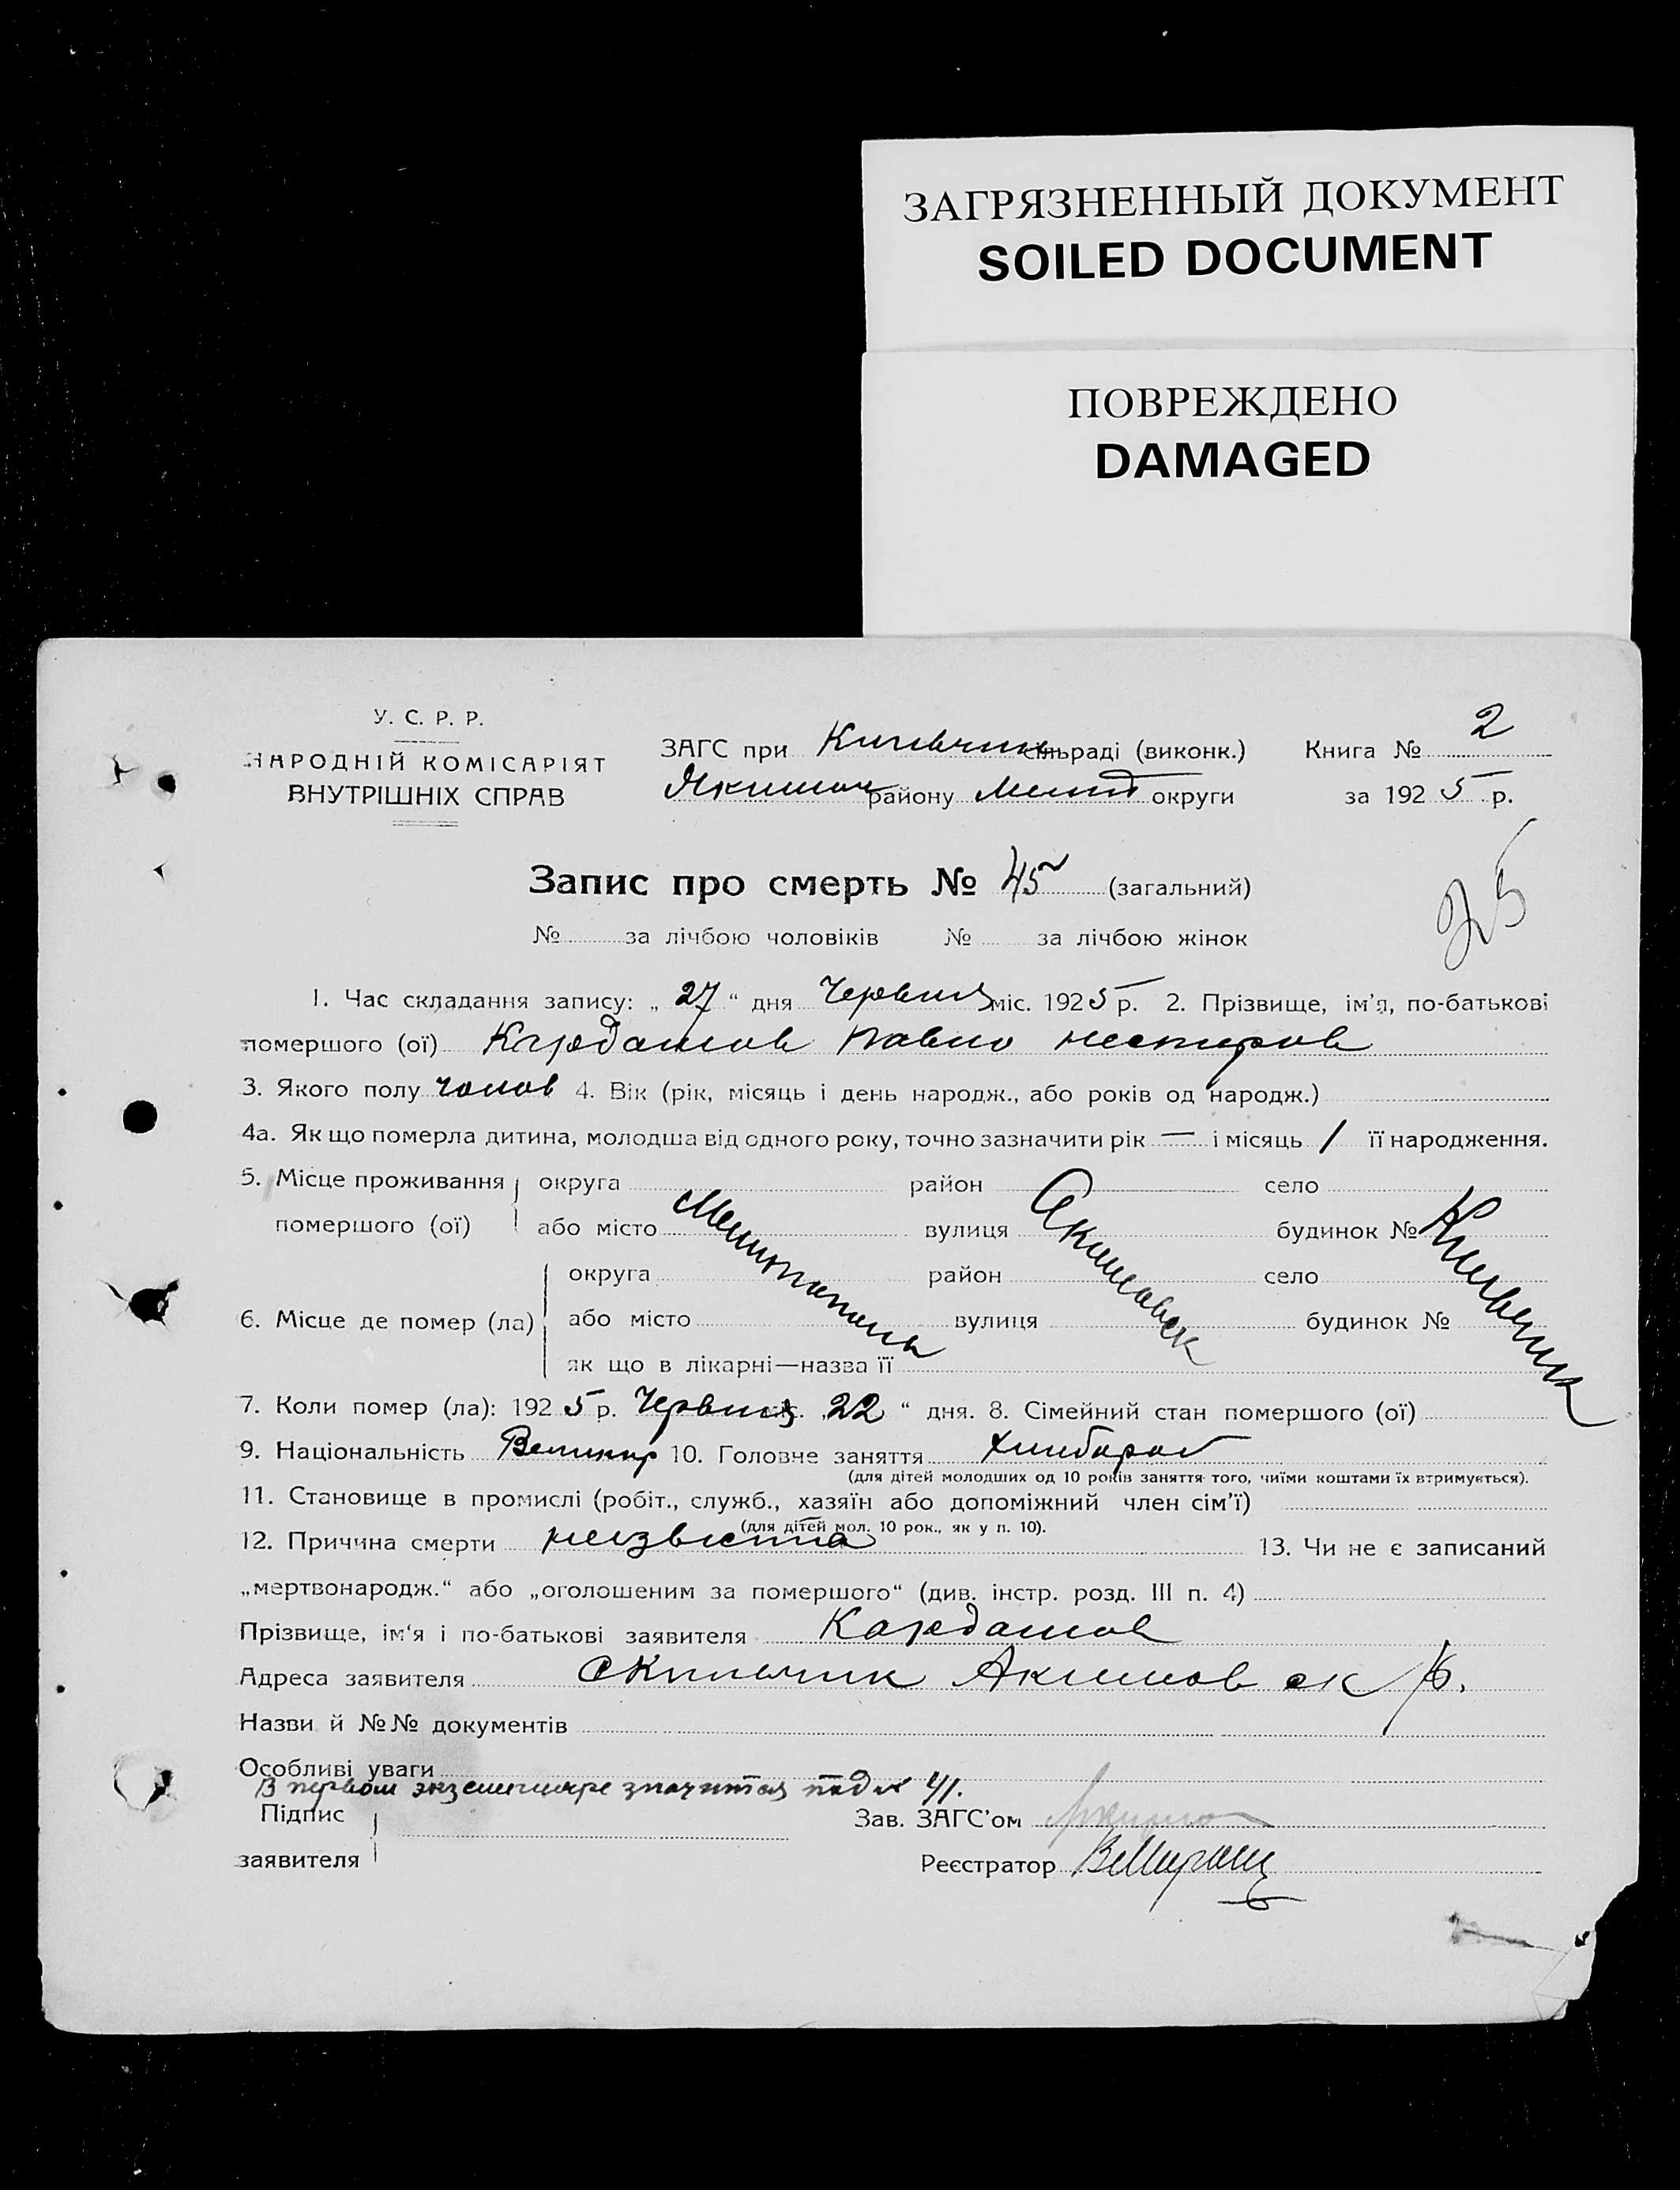 ЗАГРЯЗНЕННЫЙ ДОКУМЕНТ
SOILED DOCUMENT
ПОВРЕЖДЕНО
DAMAGED
У. С. Р. Р.
НАРОДНІЙ КОМІСАРІЯТ
ВНУТРІШНІХ СПРАВ
ЗАГС при сільраді (виконк.) Книга № 2
району округи за 1925 р.
Запис про смерть № 45 (загальний)
25
№ за лічбою чоловіків № за лічбою жінок
1. Час складання запису: „ 27 “ дня Червня міс. 1925 р. 2. Прізвище, ім'я, по-батькові
помершого (ої) Кардашов Павло Нестиров
3. Якого полу чолов 4. Вік (рік, місяць і день народж., або років од народж.)
4а. Як що померла дитина, молодша від одного року, точно зазначити рік — і місяць / її народження.
5. Місце проживання округа район село
помершого (ої) або місто Мелитополь вулиця Акимовск будинок №
округа район село
6. Місце де помер (ла) або місто вулиця будинок №
як що в лікарні—назва її
7. Коли помер (ла): 1925 р. Червня „22“ дня. 8. Сімейний стан помершого (ої)
9. Національність Великор 10. Головне заняття хлибороб
(для дітей молодших од 10 років заняття того, чиїми коштами їх втримується).
11. Становище в промислі (робіт., служб., хазяїн або допоміжний член сім'ї)
(для дітей мол. 10 рок., як у п. 10).
12. Причина смерти неизвистна 13. Чи не є записаний
„мертвонародж.“ або „оголошеним за помершого“ (див. інстр. розд. III п. 4)
Прізвище, ім'я і по-батькові заявителя Кардашов
Адреса заявителя Акимовск р.
Назви й №№ документів
Особливі уваги
В первом экземпляре значится под № 41.
Підпис Зав. ЗАГС'ом
заявителя Реєстратор